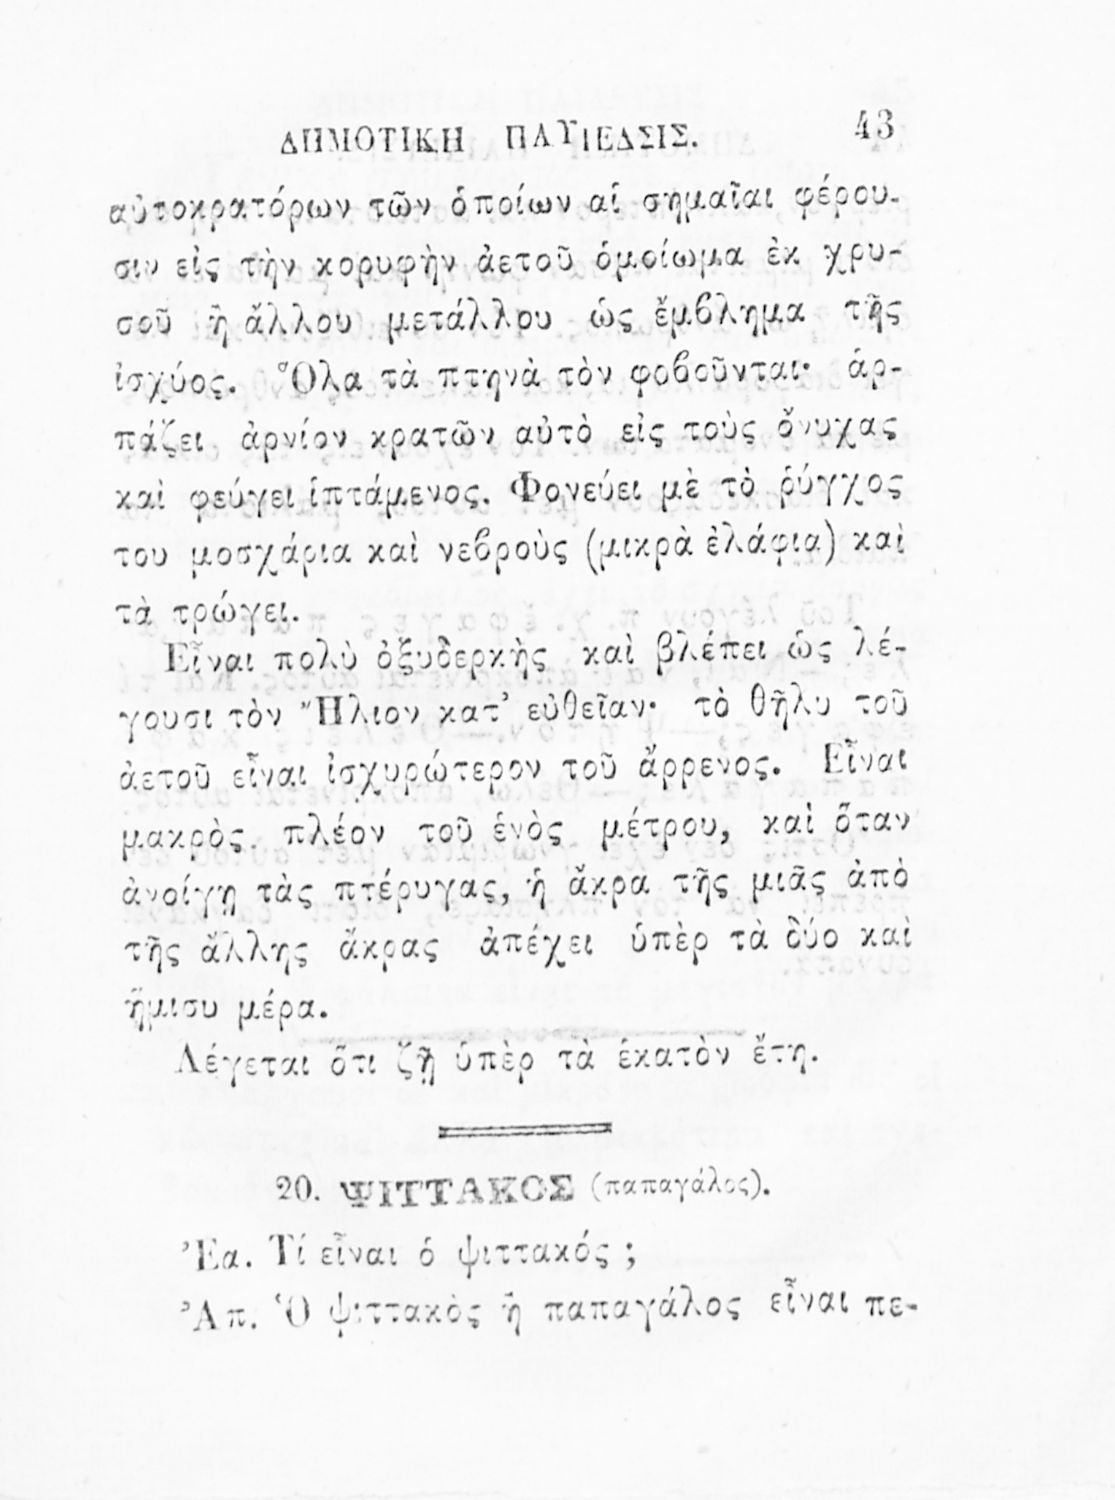 ΔΗΜΟΤΙΚΗ ΠΑΥΙΕΔΣΙΣ. 43
αὐτοκρατόρων τῶν ὁποίων αἱ σημαῖαι φέρου-
σιν εἰς τὴν κορυφὴν ἀετοῦ ὁμοίωμα ἐκ χρυ-
σοῦ ἢ ἄλλου μετάλλου ὡς ἔμβλημα τῆς
ἰσχύος. Ὅλα τὰ πτηνὰ τὸν φοβοῦνται· ἁρ-
πάζει ἀρνίον κρατῶν αὐτὸ εἰς τοὺς ὄνυχας
καὶ φεύγει ἱπτάμενος. Φονεύει μὲ τὸ ῥύγχος
του μοσχάρια καὶ νεβροὺς (μικρὰ ἐλάφια) καὶ
τὰ τρώγει.
Εἶναι πολὺ ὀξυδερκὴς καὶ βλέπει ὡς λέ-
γουσι τὸν Ἥλιον κατ’ εὐθεῖαν· τὸ θῆλυ τοῦ
ἀετοῦ εἶναι ἰσχυρώτερον τοῦ ἄρρενος. Εἶναι
μακρὸς πλέον τοῦ ἑνὸς μέτρου, καὶ ὅταν
ἀνοίγῃ τὰς πτέρυγας, ἡ ἄκρα τῆς μιᾶς ἀπὸ
τῆς ἄλλης ἄκρας ἀπέχει ὑπὲρ τὰ δύο καὶ
ἥμισυ μέρα.
Λέγεται ὅτι ζῇ ὑπὲρ τὰ ἑκατὸν ἔτη.
20. ΨΙΤΤΑΚΟΣ (παπαγάλος).
Ἐα. Τί εἶναι ὁ ψιττακός ;
Ἀπ. Ὁ ψιττακὸς ἢ παπαγάλος εἶναι πε-